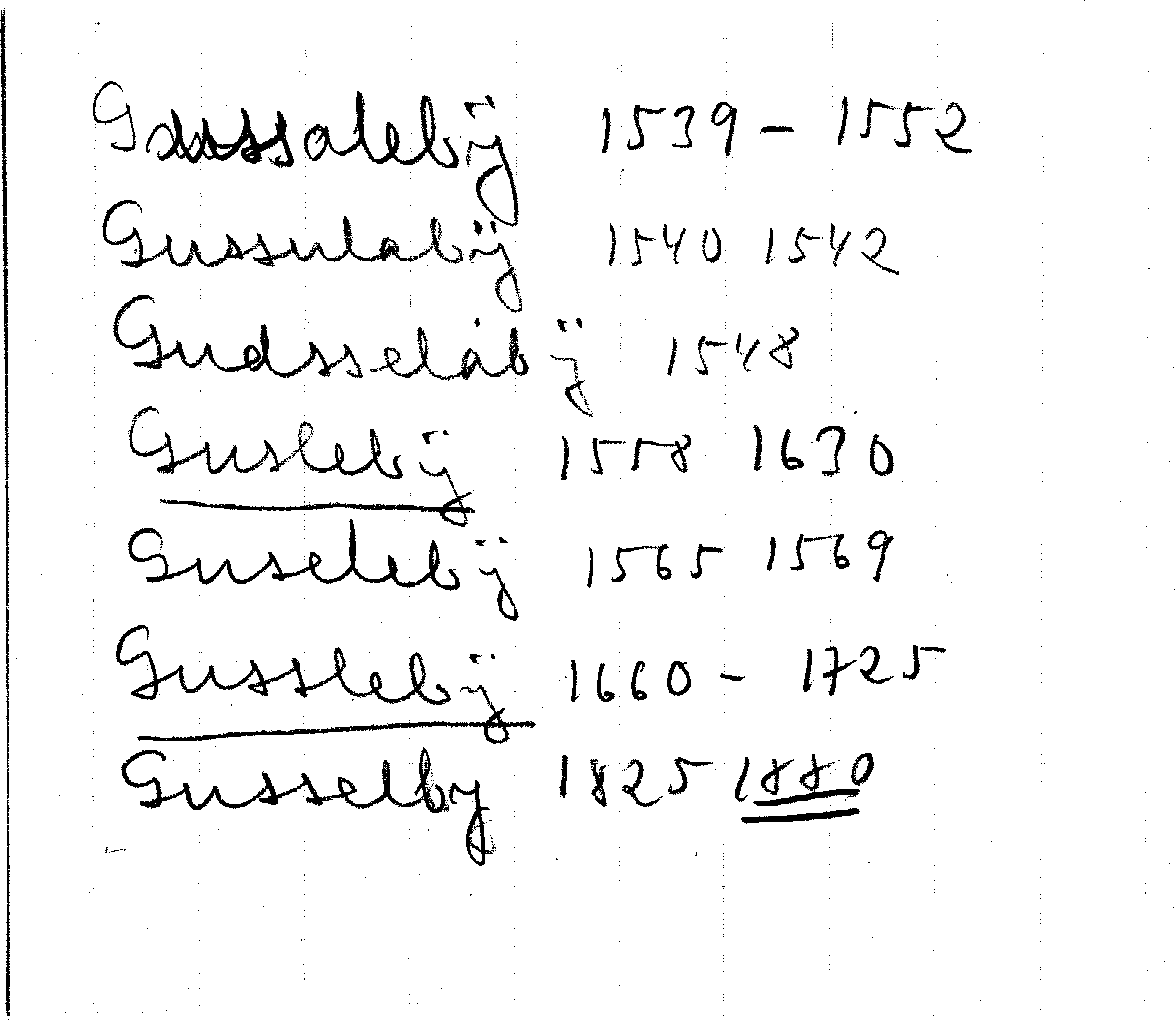 Gussalebÿ 1539 - 1552
Gussulabÿ 1540 1542
Gudsselåbÿ 1548
Guslebÿ 1558 1630
Guselebÿ 1565 1569
Gusslebÿ 1660 - 1725
Gusselby 1825 1880